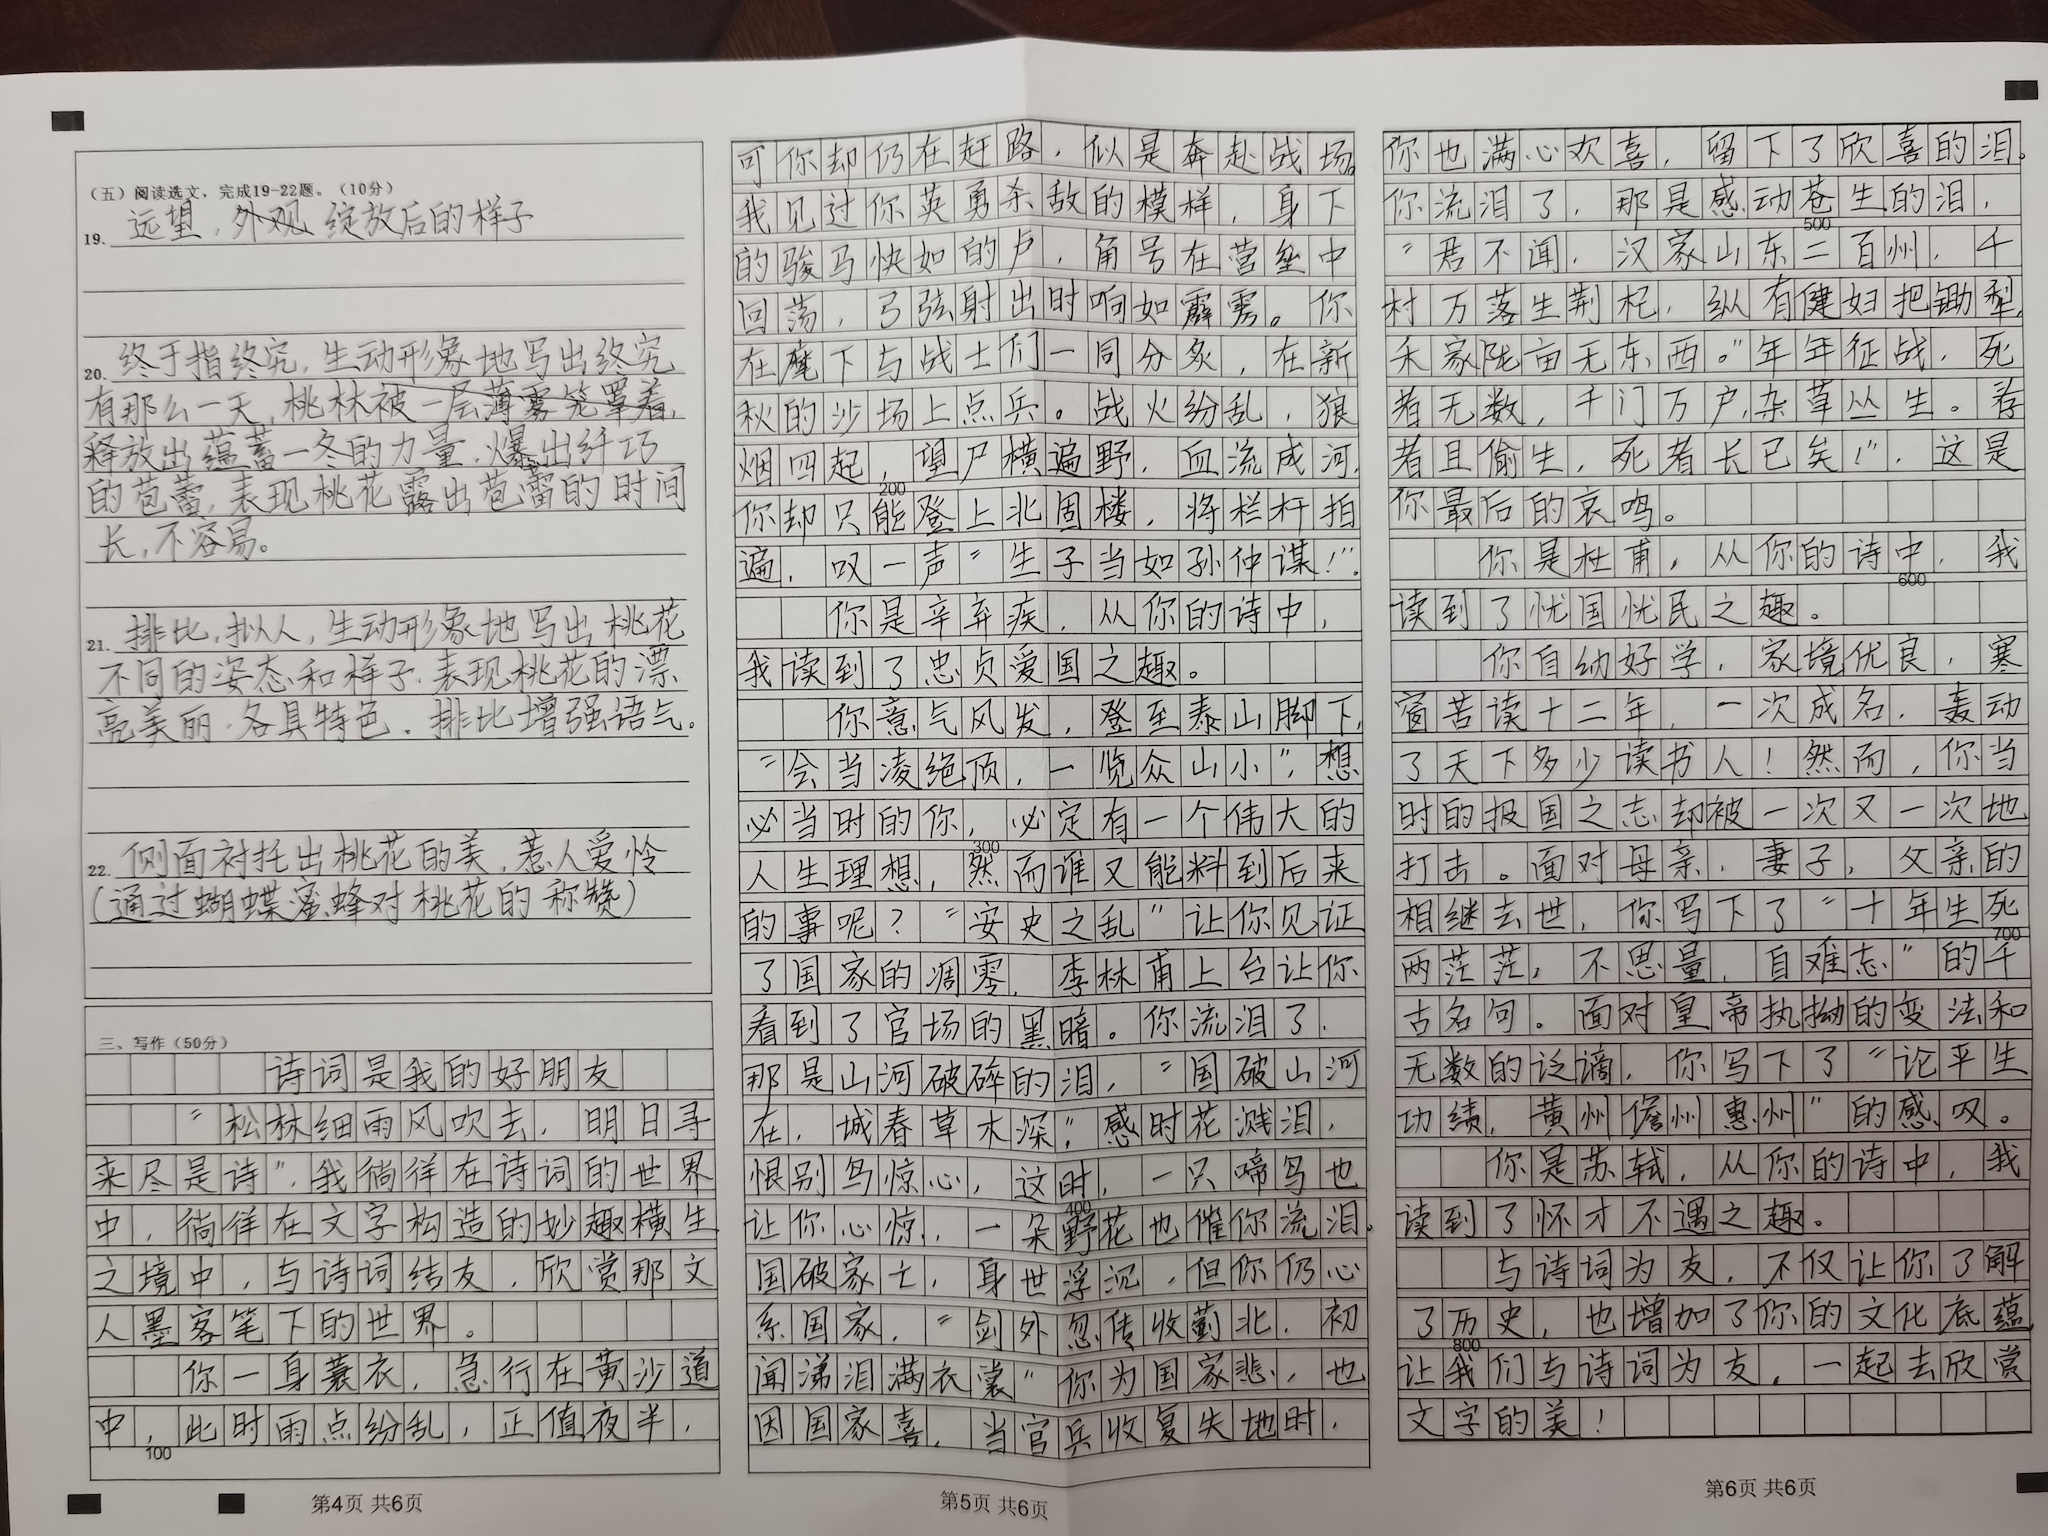 （五）阅读选文，完成19-22题。（10分）
19. 远望，外观 绽放后的样子
20. 终于指终究，生动形象地写出终究
有那么一天，桃林被一层薄雾笼罩着，
释放出蕴蓄一冬的力量，爆出纤巧
的苞蕾，表现桃花露出苞蕾的时间
长，不容易。
21. 排比，拟人，生动形象地写出桃花
不同的姿态和样子，表现桃花的漂
亮美丽，各具特色。排比增强语气。
22. 侧面衬托出桃花的美，惹人爱怜
（通过蝴蝶蜜蜂对桃花的称赞）
三、写作（50分）
诗词是我的好朋友
“松林细雨风吹去，明日寻
来尽是诗”，我徜徉在诗词的世界
中，徜徉在文字构造的妙趣横生
之境中，与诗词结友，欣赏那文
人墨客笔下的世界。
你一身蓑衣，急行在黄沙道
中，此时雨点纷乱，正值夜半，
100
第4页 共6页
可你却仍在赶路，似是奔赴战场。
我见过你英勇杀敌的模样，身下
的骏马快如的卢，角号在营垒中
回荡，弓弦射出时响如霹雳。你
在麾下与战士们一同分炙，在新
秋的沙场上点兵。战火纷乱，狼
烟四起，望尸横遍野，血流成河，
200
你却只能登上北固楼，将栏杆拍
遍，叹一声“生子当如孙仲谋！”。
你是辛弃疾，从你的诗中，
我读到了忠贞爱国之趣。
你意气风发，登至泰山脚下，
“会当凌绝顶，一览众山小”，想
必当时的你，必定有一个伟大的
300
人生理想，然而谁又能料到后来
的事呢？“安史之乱”让你见证
了国家的凋零，李林甫上台让你
看到了官场的黑暗。你流泪了，
那是山河破碎的泪，“国破山河
在，城春草木深”，感时花溅泪，
恨别鸟惊心，这时，一只啼鸟也
400
让你心惊，一朵野花也催你流泪。
国破家亡，身世浮沉，但你仍心
系国家，“剑外忽传收蓟北，初
闻涕泪满衣裳”你为国家悲，也
因国家喜，当官兵收复失地时，
第5页 共6页
你也满心欢喜，留下了欣喜的泪。
你流泪了，那是感动苍生的泪，
500
“君不闻，汉家山东二百州，千
村万落生荆杞，纵有健妇把锄犁，
禾家陇亩无东西。”年年征战，死
者无数，千门万户，杂草丛生。存
者且偷生，死者长已矣！”，这是
你最后的哀鸣。
你是杜甫，从你的诗中，我
600
读到了忧国忧民之趣。
你自幼好学，家境优良，寒
窗苦读十二年，一次成名，轰动
了天下多少读书人！然而，你当
时的报国之志却被一次又一次地
打击。面对母亲，妻子，父亲的
相继去世，你写下了“十年生死
700
两茫茫，不思量，自难忘”的千
古名句。面对皇帝执拗的变法和
无数的泛谪，你写下了“论平生
功绩，黄州儋州惠州”的感叹。
你是苏轼，从你的诗中，我
读到了怀才不遇之趣。
与诗词为友，不仅让你了解
了历史，也增加了你的文化底蕴，
800
让我们与诗词为友，一起去欣赏
文字的美！
第6页 共6页